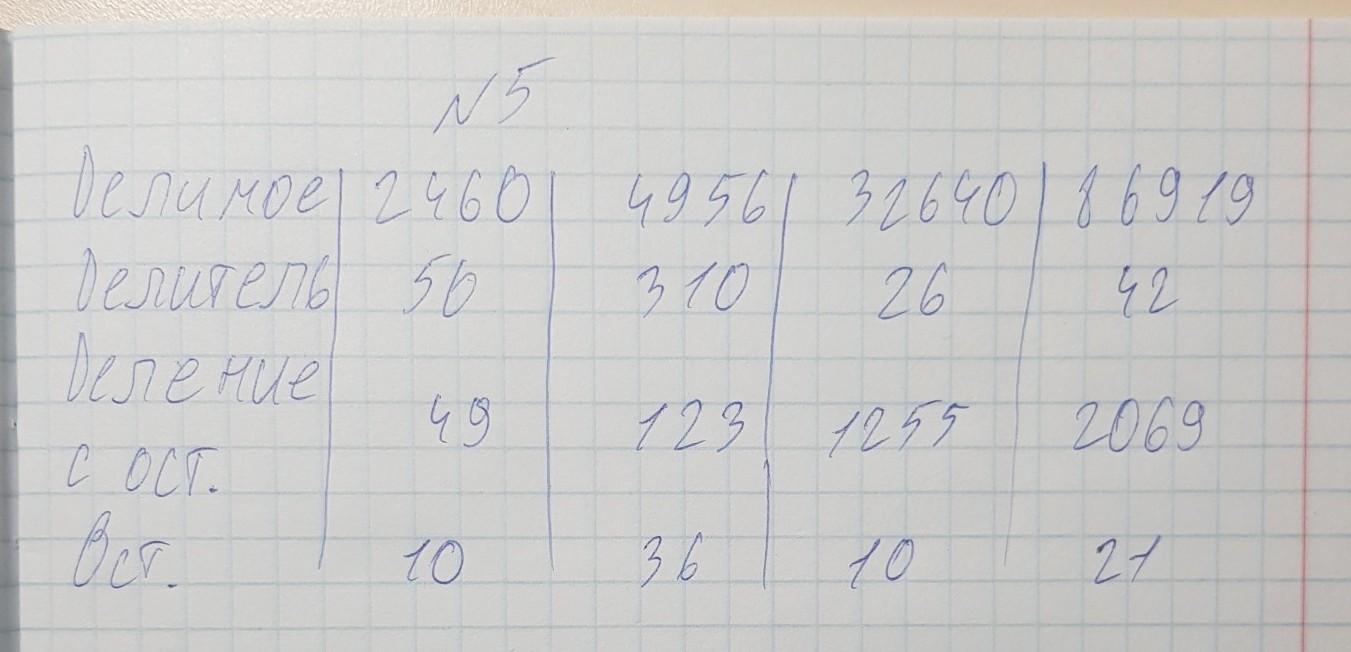 N5
Делимое 2460 4956 32640 86919
Делитель 50 310 26 42
Деление
с ост. 49 123 1255 2069
Ост. 10 36 10 21